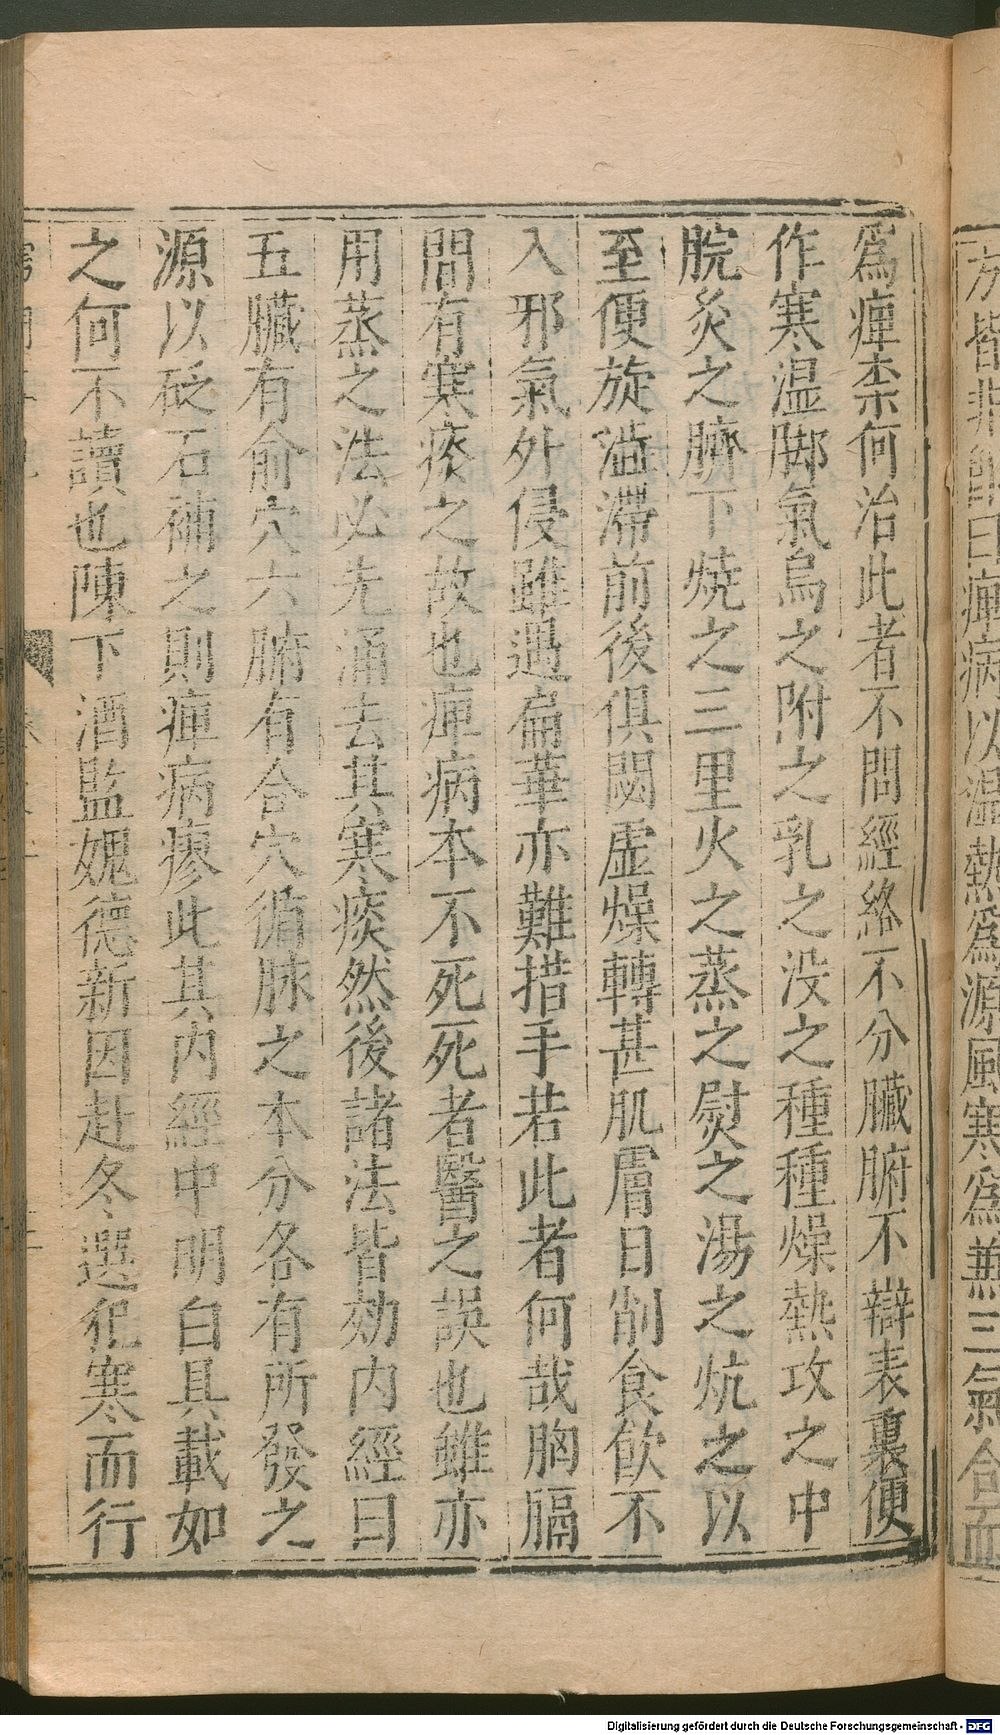 方皆非鮮曰痺病以温熱爲源風寒爲兼三氣合而
爲痺柰何治此者不問經絡不分臟腑不辯表裏便
作寒温脚氣烏之附之乳之没之種種燥熱攻之中
脘灸之臍下燒之三里火之蒸之熨之湯之炕之以
至便旋澁滯前後俱閟虛燥轉甚肌膚日削食飲不
入邪氣外侵雖遇扁華亦難措手若此者何哉胸膈
間有寒痰之故也痺病本不死死者醫之誤也雖亦
用蒸之法必先涌去其寒痰然後諸法皆効内經曰
五臟有俞穴六腑有合穴循脉之本分各有所發之
源以砭石補之則痺病瘳此其内經中明白具載如
之何不讀也陳下酒監媿德新因赴冬選犯寒而行
Digitalisierung gefördert durch die Deutsche Forschungsgemeinschaft - DFG